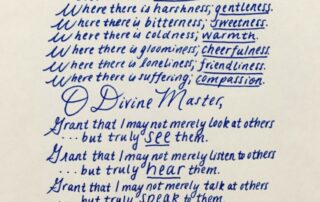 Where there is harshness; gentleness.
Where there is bitterness; sweetness.
Where there is coldness; warmth.
Where there is gloominess; cheerfulness.
Where there is loneliness; friendliness.
Where there is suffering; compassion.
O Divine Master,
Grant that I may not merely look at others
...but truly see them.
Grant that I may not merely listen to others
...but truly hear them.
Grant that I may not merely talk at others
...but truly speak to them